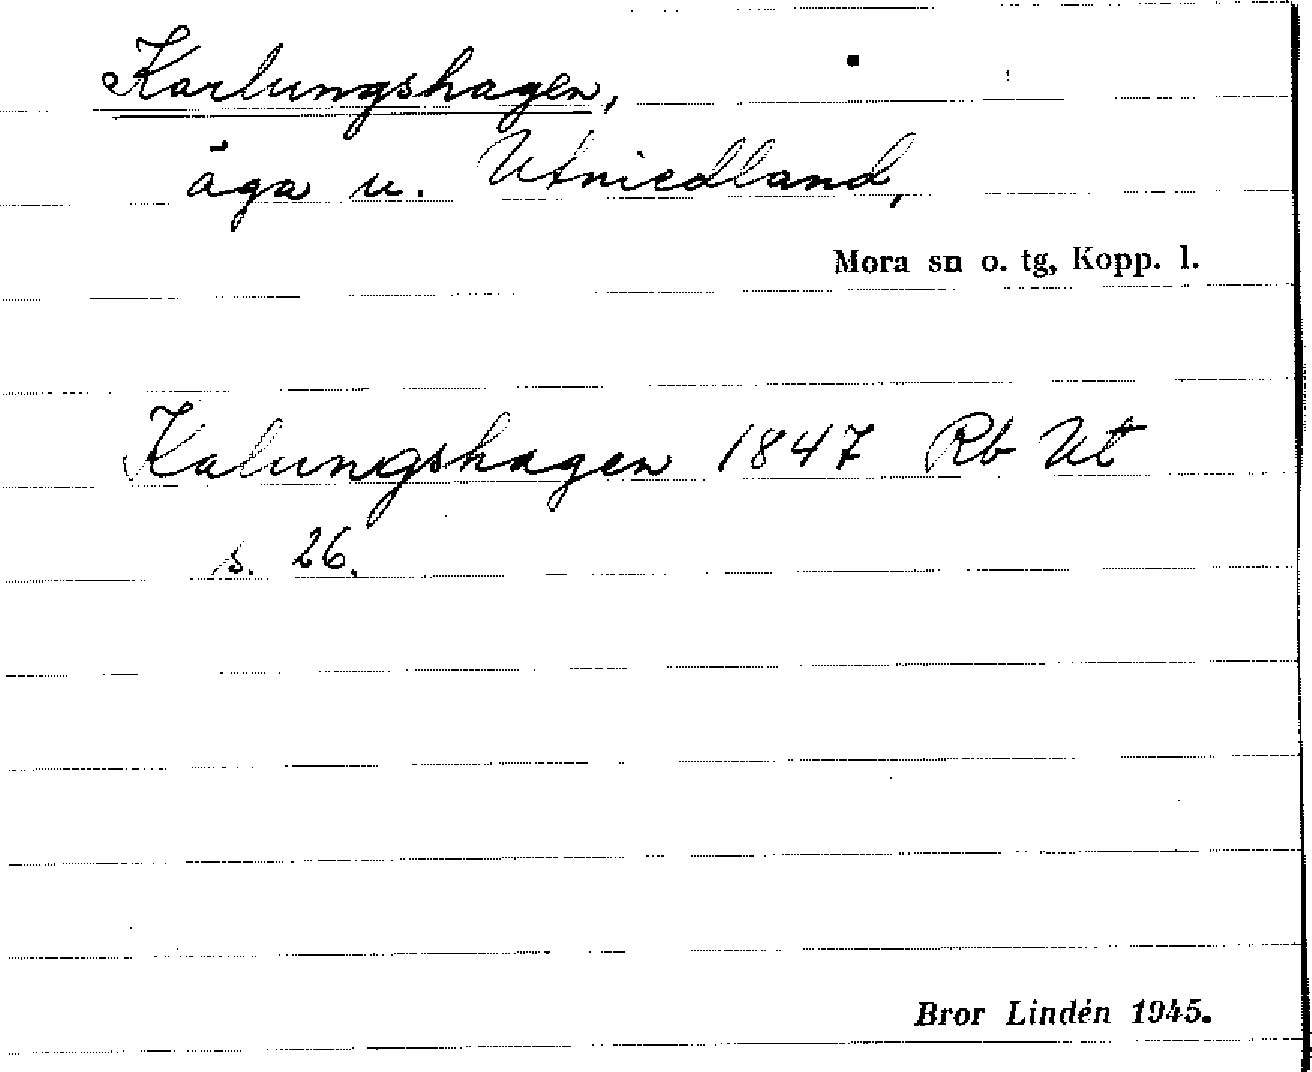 Karlungshagen,
äga u. Utmedland,
Mora sn o. tg, Kopp. l.
Kalungshagen 1847 Rb Ut
s. 26.
Bror Lindén 1945.